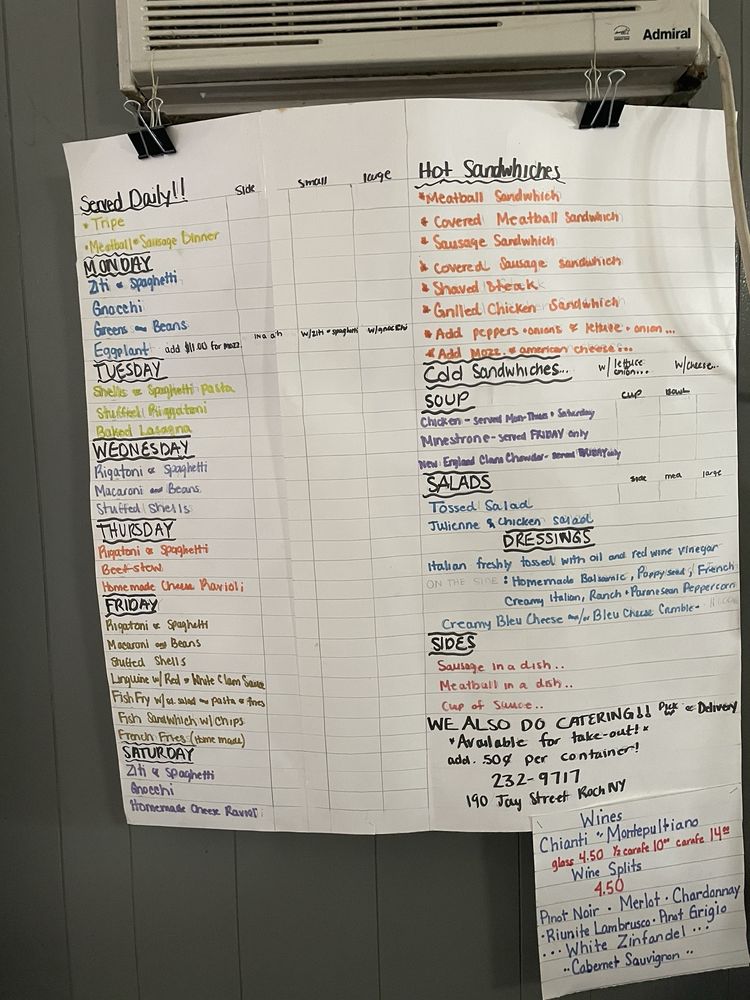 Admiral
Served Daily!!
Side
small
large
* Tripe
* Meatball & Sausage Dinner
MONDAY
Ziti & Spaghetti
Gnocchi
Greens and Beans
Eggplant add $11.00 for mozz.
w/ziti & spaghetti
w/gnocchi
TUESDAY
Shells & Spaghetti pasta
Stuffed Riggatoni
Baked Lasagna
WEDNESDAY
Rigatoni & Spaghetti
Macaroni and Beans
Stuffed Shells
THURSDAY
Rigatoni & Spaghetti
Beef-stew
Homemade Cheese Ravioli
FRIDAY
Rigatoni & Spaghetti
Macaroni and Beans
Stuffed Shells
Linguine w/ Red & White Clam Sauce
Fish Fry w/ sl. salad and pasta & fries
Fish Sandwhich w/ chips
French Fries (Home made)
SATURDAY
Ziti & Spaghetti
Gnocchi
Homemade Cheese Ravioli
Hot Sandwhiches
* Meatball Sandwhich
* Covered Meatball Sandwhich
* Sausage Sandwhich
* Covered Sausage sandwhich
* Shaved Steak
* Grilled Chicken Sandwhich
* Add peppers + onions & lettuce + onion ...
* Add Mozz. & american cheese...
Cold Sandwhiches...
w/ lettuce onion...
w/cheese..
SOUP
cup
bowl
Chicken - served Mon-Thurs & Saturday
Minestrone - served FRIDAY only
New England Clam Chowder - served FRIDAY only
SALADS
side
med
large
Tossed Salad
Julienne & Chicken salad
DRESSINGS
Italian freshly tossed with oil and red wine vinegar
ON THE SIDE: Homemade Balsamic, Poppyseed, French
Creamy Italian, Ranch + Parmesan Peppercorn
Creamy Bleu Cheese and/or Bleu Cheese Crumble -
SIDES
Sausage in a dish..
Meatball in a dish..
Cup of Sauce..
WE ALSO DO CATERING!! Pick up & Delivery
*Available for take-out!*
add. 50¢ per container!
232-9717
190 Jay Street Roch NY
Wines
Chianti ~ Montepultiano
glass 4.50 ½ carafe 10⁰⁰ carafe 14⁰⁰
Wine Splits
4.50
Pinot Noir . Merlot . Chardonnay
. Riunite Lambrusco . Pinot Grigio
... White Zinfandel ...
.. Cabernet Sauvignon ..